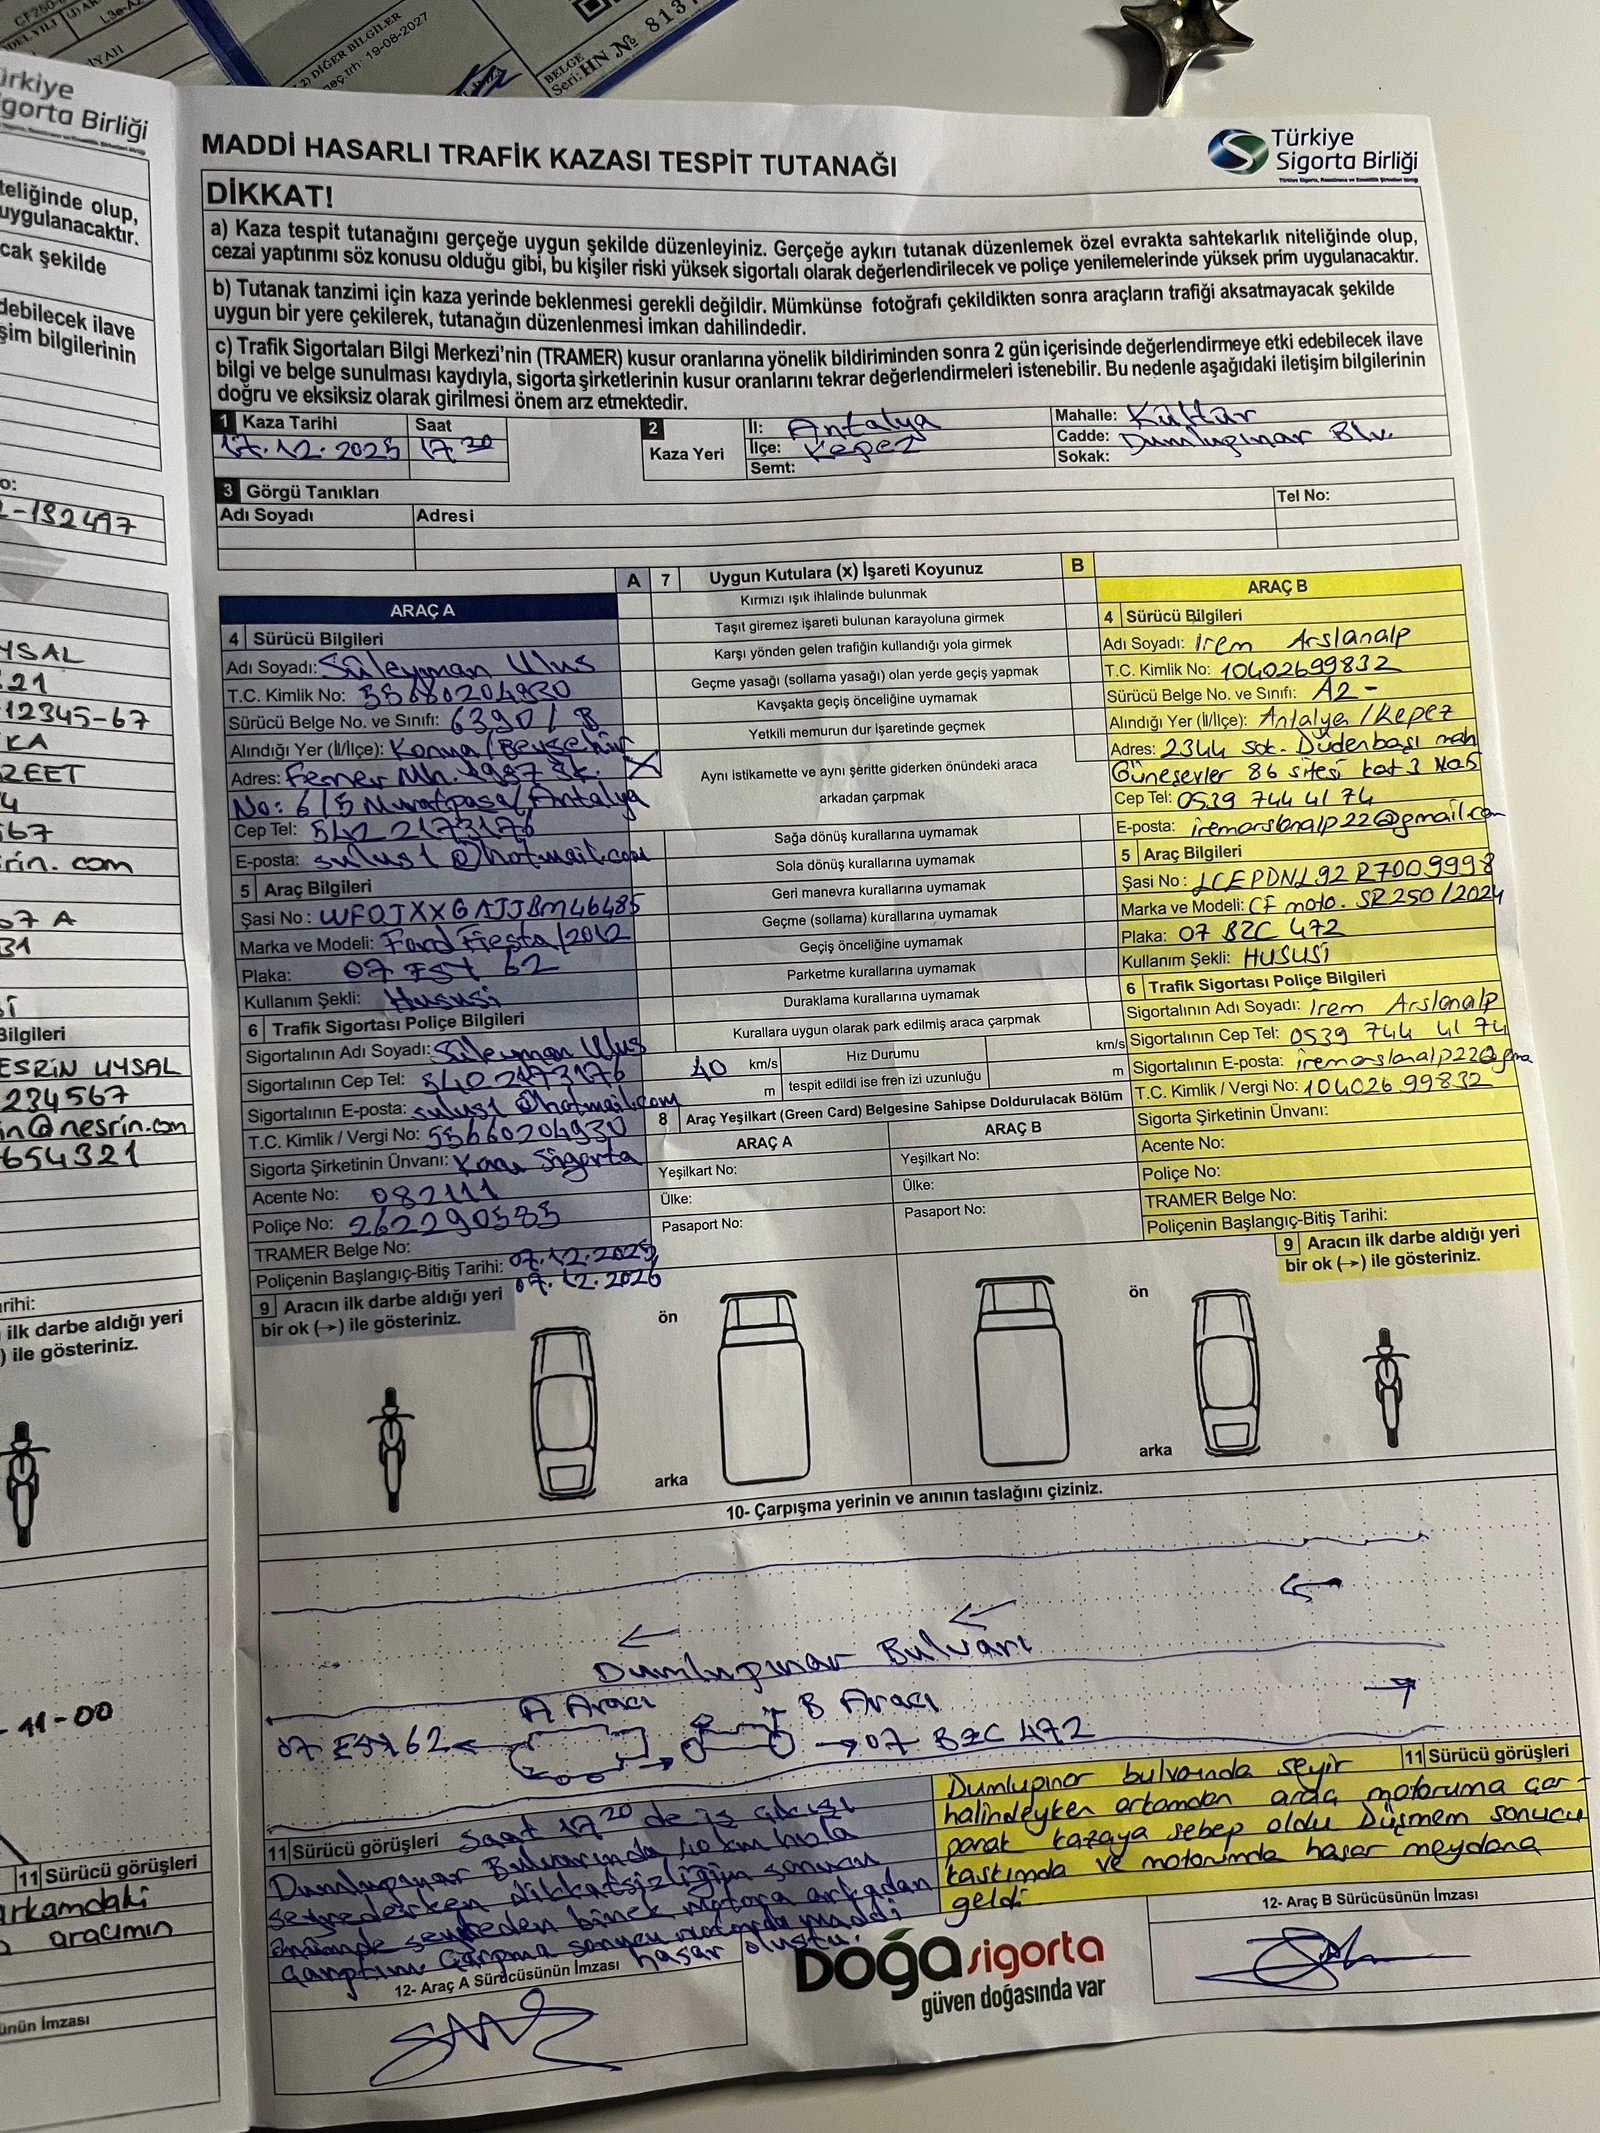 L3e-A2
2) DİĞER BİLGİLER
19-08-2027
BELGE
Seri: HN № 8137
Türkiye
Sigorta Birliği
MADDİ HASARLI TRAFİK KAZASI TESPİT TUTANAĞI
Türkiye
Sigorta Birliği
DİKKAT!
a) Kaza tespit tutanağını gerçeğe uygun şekilde düzenleyiniz. Gerçeğe aykırı tutanak düzenlemek özel evrakta sahtekarlık niteliğinde olup,
cezai yaptırımı söz konusu olduğu gibi, bu kişiler riski yüksek sigortalı olarak değerlendirilecek ve poliçe yenilemelerinde yüksek prim uygulanacaktır.
b) Tutanak tanzimi için kaza yerinde beklenmesi gerekli değildir. Mümkünse fotoğrafı çekildikten sonra araçların trafiği aksatmayacak şekilde
uygun bir yere çekilerek, tutanağın düzenlenmesi imkan dahilindedir.
c) Trafik Sigortaları Bilgi Merkezi'nin (TRAMER) kusur oranlarına yönelik bildiriminden sonra 2 gün içerisinde değerlendirmeye etki edebilecek ilave
bilgi ve belge sunulması kaydıyla, sigorta şirketlerinin kusur oranlarını tekrar değerlendirmeleri istenebilir. Bu nedenle aşağıdaki iletişim bilgilerinin
doğru ve eksiksiz olarak girilmesi önem arz etmektedir.
1 Kaza Tarihi Saat
17.12.2025 17 30
2 Kaza Yeri
İl: Antalya
İlçe: Kepez
Semt:
Mahalle: Kültür
Cadde: Dumlupınar Blv.
Sokak:
3 Görgü Tanıkları
Adı Soyadı Adresi Tel No:
A 7 Uygun Kutulara (x) İşareti Koyunuz B
Kırmızı ışık ihlalinde bulunmak
Taşıt giremez işareti bulunan karayoluna girmek
Karşı yönden gelen trafiğin kullandığı yola girmek
Geçme yasağı (sollama yasağı) olan yerde geçiş yapmak
Kavşakta geçiş önceliğine uymamak
Yetkili memurun dur işaretinde geçmek
X Aynı istikamette ve aynı şeritte giderken önündeki araca
arkadan çarpmak
Sağa dönüş kurallarına uymamak
Sola dönüş kurallarına uymamak
Geri manevra kurallarına uymamak
Geçme (sollama) kurallarına uymamak
Geçiş önceliğine uymamak
Parketme kurallarına uymamak
Duraklama kurallarına uymamak
Kurallara uygun olarak park edilmiş araca çarpmak
40 km/s Hız Durumu km/s
m tespit edildi ise fren izi uzunluğu m
8 Araç Yeşilkart (Green Card) Belgesine Sahipse Doldurulacak Bölüm
ARAÇ A ARAÇ B
Yeşilkart No: Yeşilkart No:
Ülke: Ülke:
Pasaport No: Pasaport No:
ARAÇ A
4 Sürücü Bilgileri
Adı Soyadı: Süleyman Ulus
T.C. Kimlik No: 55660204930
Sürücü Belge No. ve Sınıfı: 6390 / B
Alındığı Yer (İl/İlçe): Konya / Beyşehir
Adres: Fener Mh. 1987 Sk.
No: 6/5 Muratpaşa/Antalya
Cep Tel: 542 2173176
E-posta: sulus1@hotmail.com
5 Araç Bilgileri
Şasi No: WF0JXXGAJJBM46485
Marka ve Modeli: Ford Fiesta / 2012
Plaka: 07 EST 62
Kullanım Şekli: Hususi
6 Trafik Sigortası Poliçe Bilgileri
Sigortalının Adı Soyadı: Süleyman Ulus
Sigortalının Cep Tel: 5402173176
Sigortalının E-posta: sulus1@hotmail.com
T.C. Kimlik / Vergi No: 55660204930
Sigorta Şirketinin Ünvanı: Koru Sigorta
Acente No: 082111
Poliçe No: 262290535
TRAMER Belge No:
Poliçenin Başlangıç-Bitiş Tarihi: 07.12.2025
07.12.2026
9 Aracın ilk darbe aldığı yeri
bir ok (→) ile gösteriniz.
ARAÇ B
4 Sürücü Bilgileri
Adı Soyadı: İrem Arslanalp
T.C. Kimlik No: 10402699832
Sürücü Belge No. ve Sınıfı: A2 -
Alındığı Yer (İl/İlçe): Antalya / Kepez
Adres: 2344 sok. Düdenbaşı mah
Güneşevler 86 sitesi kat 3 No5
Cep Tel: 0539 744 41 74
E-posta: iremarslanalp22@gmail.com
5 Araç Bilgileri
Şasi No: LCEPDNL92R7009998
Marka ve Modeli: CF moto. SR250/2024
Plaka: 07 BZC 472
Kullanım Şekli: HUSUSİ
6 Trafik Sigortası Poliçe Bilgileri
Sigortalının Adı Soyadı: İrem Arslanalp
Sigortalının Cep Tel: 0539 744 41 74
Sigortalının E-posta: iremarslanalp22@gma
T.C. Kimlik / Vergi No: 10402699832
Sigorta Şirketinin Ünvanı:
Acente No:
Poliçe No:
TRAMER Belge No:
Poliçenin Başlangıç-Bitiş Tarihi:
9 Aracın ilk darbe aldığı yeri
bir ok (→) ile gösteriniz.
ön ön
arka arka
10- Çarpışma yerinin ve anının taslağını çiziniz.
Dumlupınar Bulvarı
A Aracı B Aracı
07 EST 62 07 BZC 472
11 Sürücü görüşleri
Saat 17 20 de iş çıkışı
Dumlupınar Bulvarında 40 km hızla
seyrederken dikkatsizliğim sonucu
önümde seyreden binek motora arkadan
çarptım. Çarpma sonucu motorda maddi
hasar oluştu.
12- Araç A Sürücüsünün İmzası
11 Sürücü görüşleri
Dumlupınar bulvarında seyir
halindeyken arkamdan araç motoruma çar-
parak kazaya sebep oldu Düşmem sonucu
kaskımda ve motorumda hasar meydana
geldi.
12- Araç B Sürücüsünün İmzası
Doğa sigorta
güven doğasında var
teliğinde olup,
uygulanacaktır.
cak şekilde
debilecek ilave
şim bilgilerinin
2-192497
YSAL
21
12345-67
KA
ZEET
567
rin.com
07 A
31
Bilgileri
ESRİN UYSAL
234567
in@nesrin.com
654321
arihi:
ilk darbe aldığı yeri
) ile gösteriniz.
- 11-00
11 Sürücü görüşleri
arkamdaki
aracımın
ünün İmzası